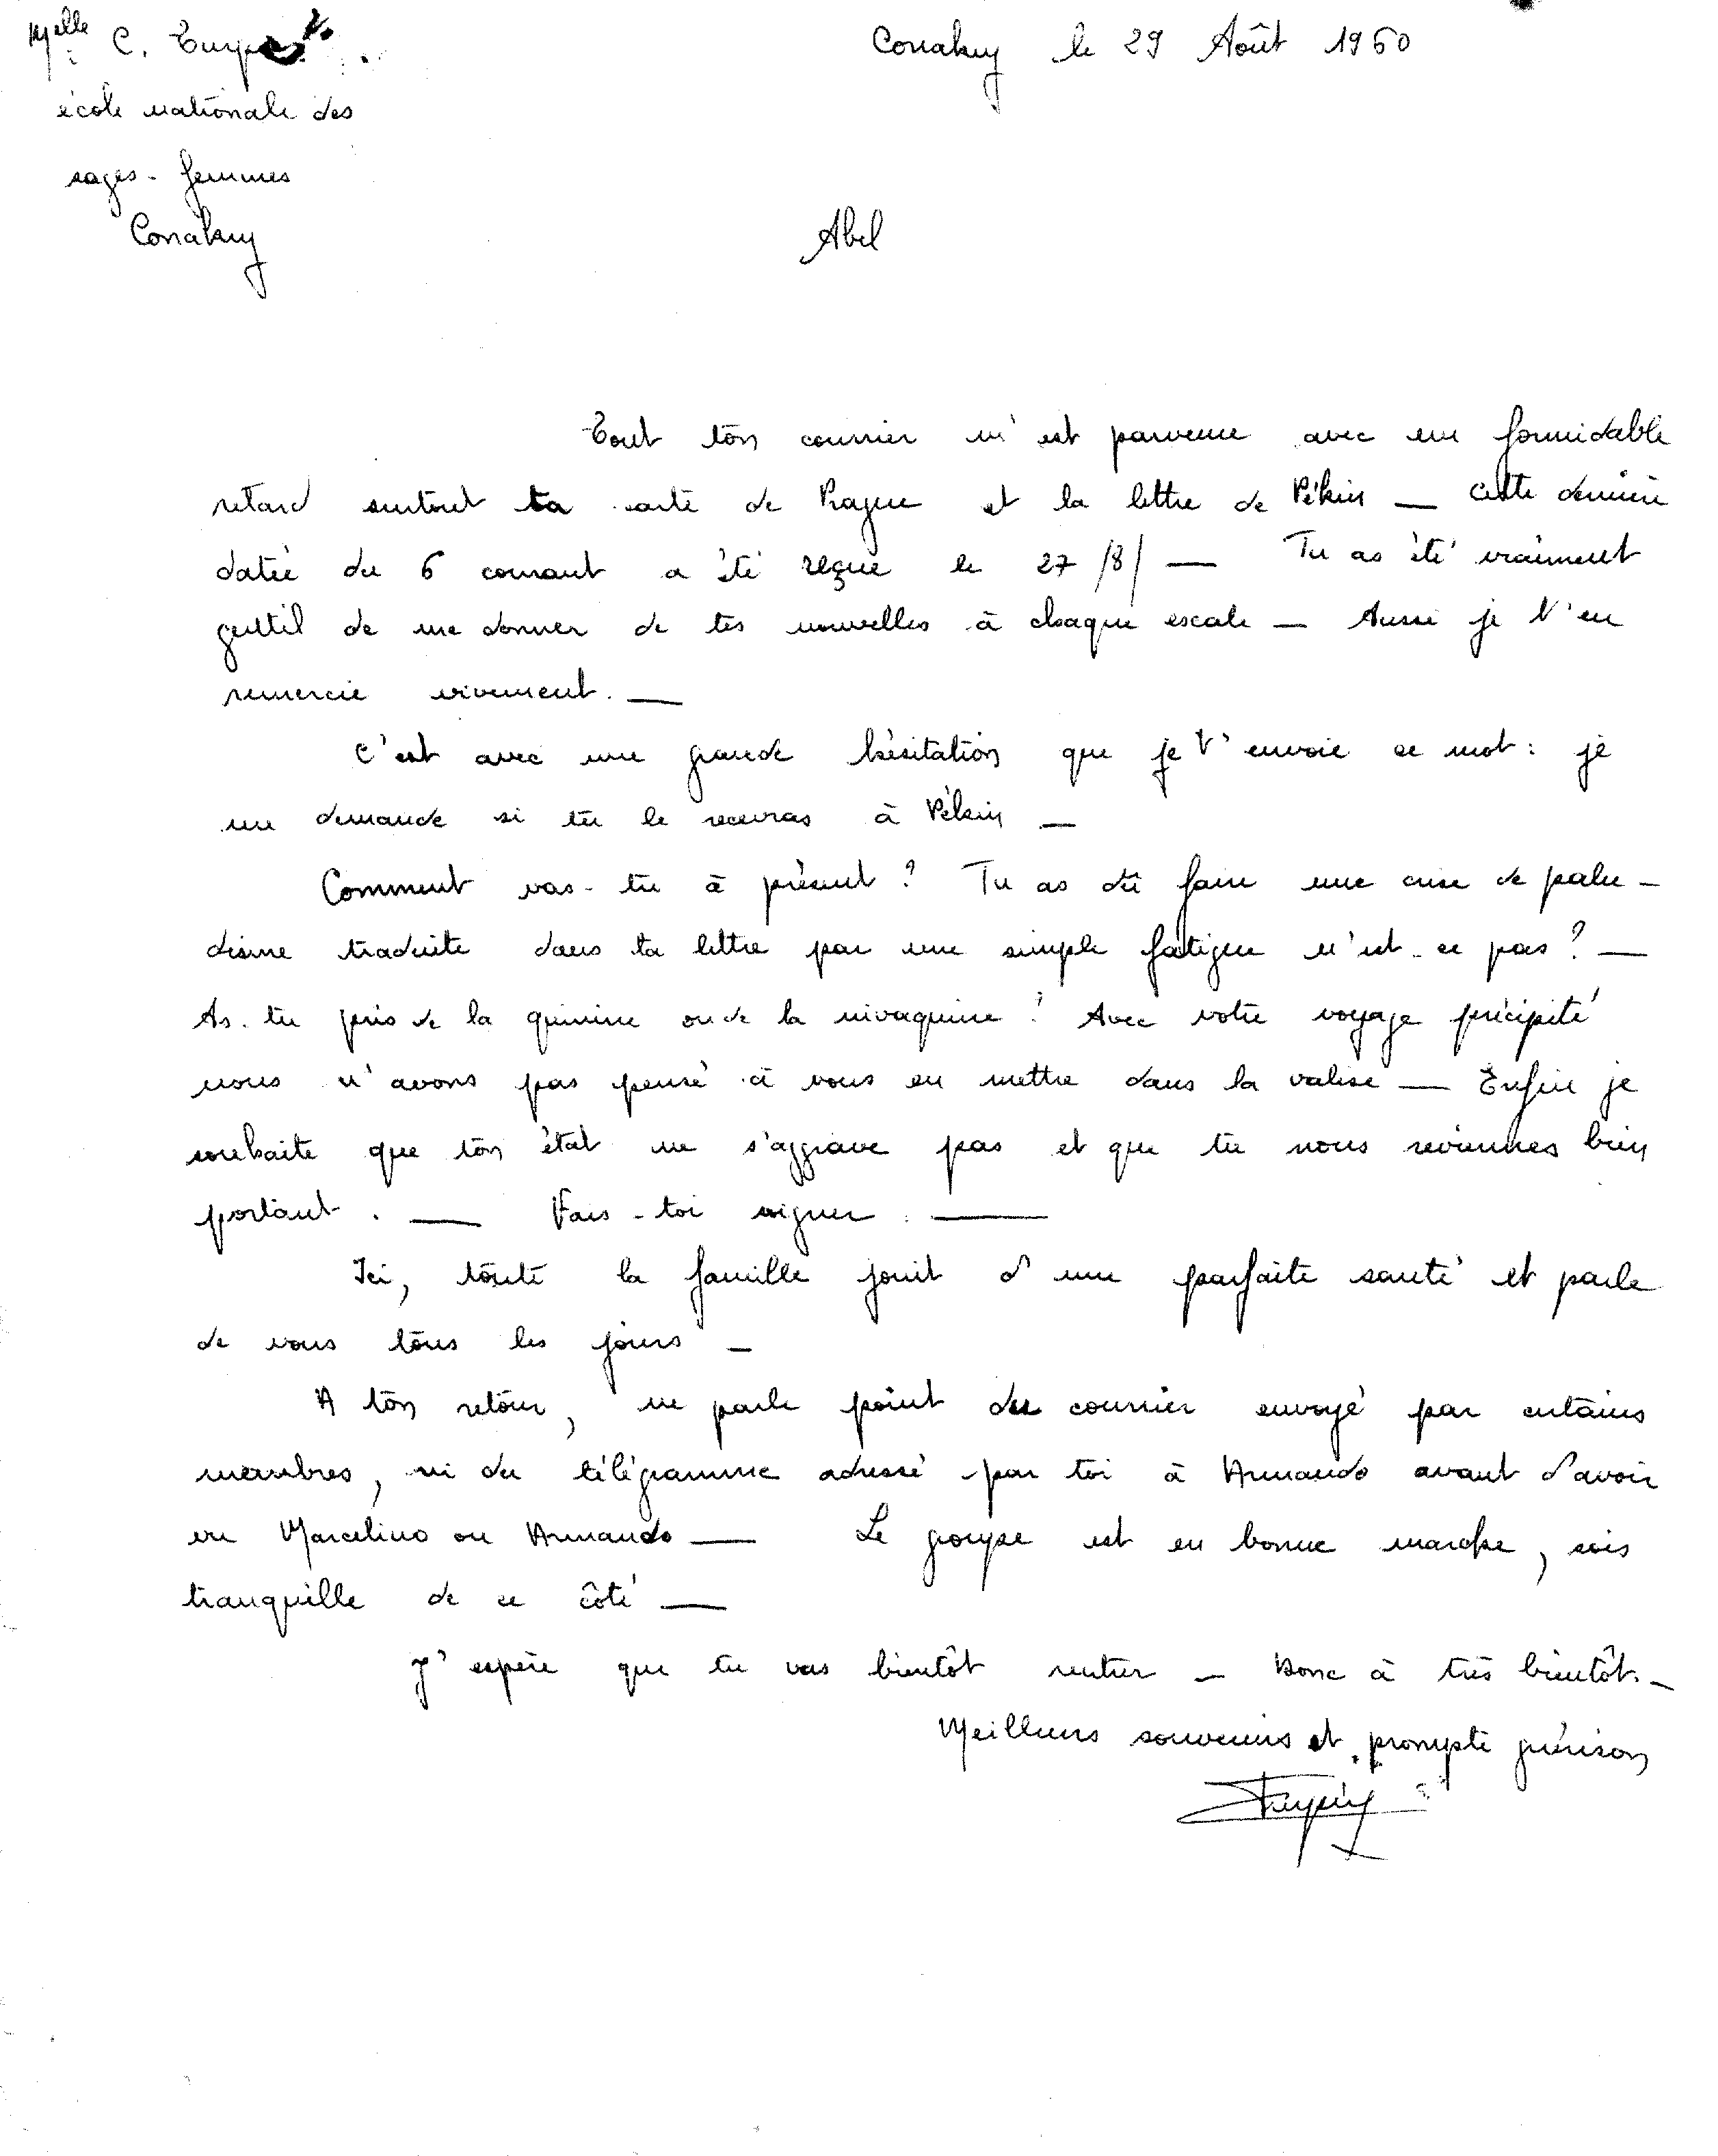 Melle C.
école nationale des
sages-femmes
Conakry
Conakry le 29 Août 1960
Abel
Tout ton courrier m'est parvenue avec un formidable
retard surtout ta carte de Prague et la lettre de Pékin — Cette dernière
datée du 6 courant a été reçue le 27/8/ — Tu as été vraiment
gentil de me donner de tes nouvelles à chaque escale — Aussi je t'en
remercie vivement. —
C'est avec une grande hésitation que je t'envoie ce mot : je
me demande si tu le recevras à Pékin —
Comment vas-tu à présent ? Tu as dû faire une crise de palu-
disme traduite dans ta lettre par une simple fatigue n'est-ce pas ? —
As-tu pris de la quinine ou de la nivaquine ? Avec votre voyage précipité
nous n'avons pas pensé à vous en mettre dans la valise — Enfin je
souhaite que ton état ne s'aggrave pas et que tu nous reviennes bien
portant. — Fais-toi soigner. —
Ici, toute la famille jouit d'une parfaite santé et parle
de vous tous les jours —
A ton retour, ne parle point du courrier envoyé par certains
membres, ni du télégramme adressé par toi à Armando avant d'avoir
vu Marcelino ou Armando — Le groupe est en bonne marche, sois
tranquille de ce côté —
J'espère que tu vas bientôt rentrer — Donc à très bientôt. —
Meilleurs souvenirs et prompte guérison